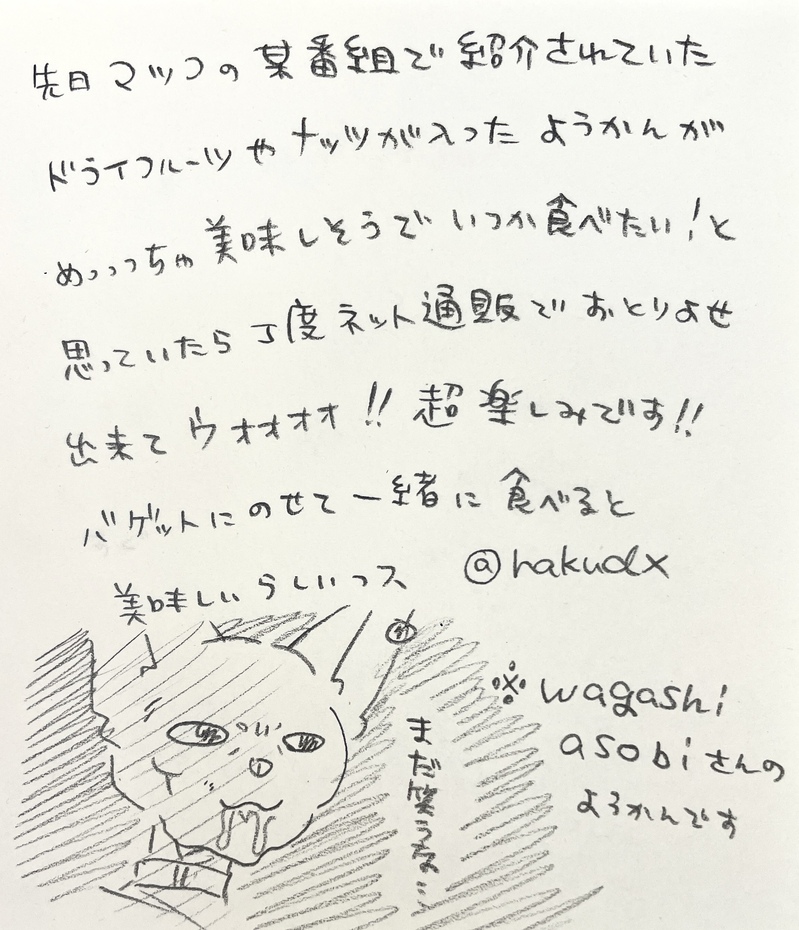 先日マツコの某番組で紹介されていた
ドライフルーツやナッツが入ったようかんが
めっっっちゃ美味しそうでいつか食べたい!と
思っていたら丁度ネット通販でおとりよせ
出来てウオオオオ!!超楽しみです!!
バゲットにのせて一緒に食べると
美味しいらしいっス
@hakudx
※wagashi
asobiさんの
ようかんです
まだ笑うな…